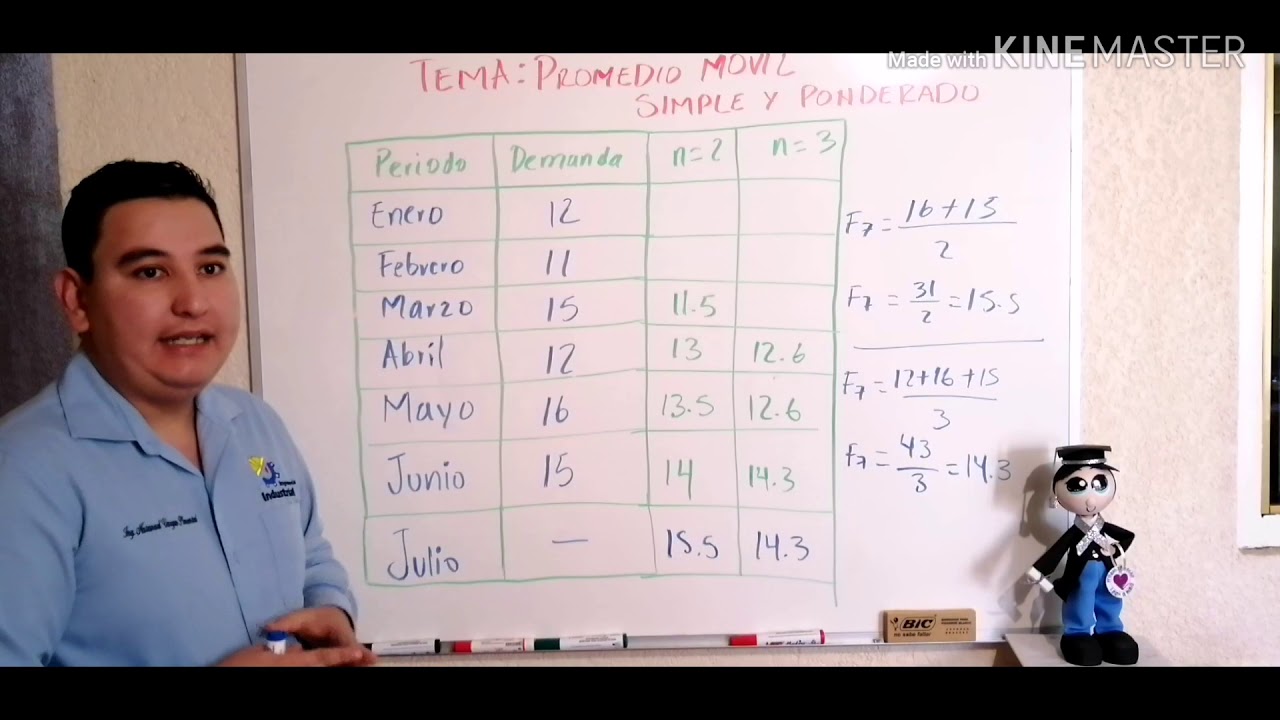 Made with KINEMASTER
TEMA: PROMEDIO MOVIL
SIMPLE Y PONDERADO
Periodo Demanda n=2 n=3
Enero 12
Febrero 11
Marzo 15 11.5
Abril 12 13 12.6
Mayo 16 13.5 12.6
Junio 15 14 14.3
Julio — 15.5 14.3
F7 = 16+15
2
F7 = 31
2
= 15.5
F7 = 12+16+15
3
F7 = 43
3
= 14.3
Industrial
BIC